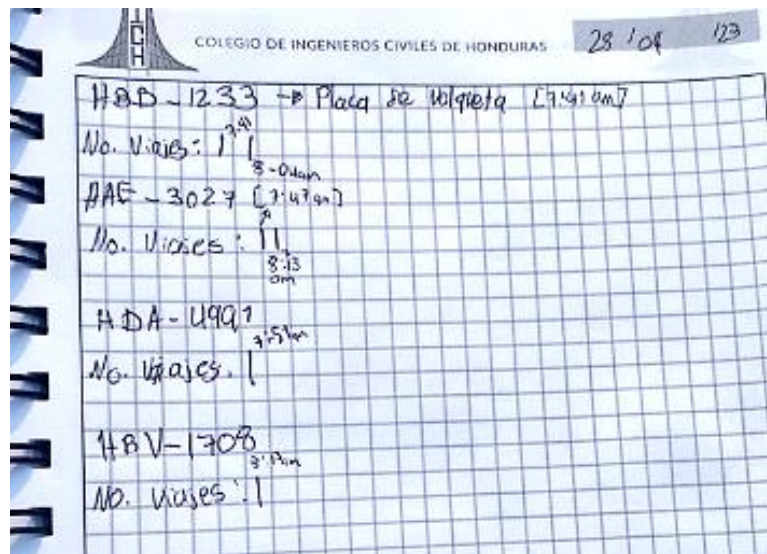 ICH
COLEGIO DE INGENIEROS CIVILES DE HONDURAS
28 / 08 123
HBD-1233 → Placa de volqueta [7:41 am]
No. Viajes: | 7:41 |
8-04am
AAE-3027 [7:47am]
No. Viajes: ||
8:13
am
HDA-4991
7:51am
No. Viajes. |
HBV-1708
No. Viajes: |